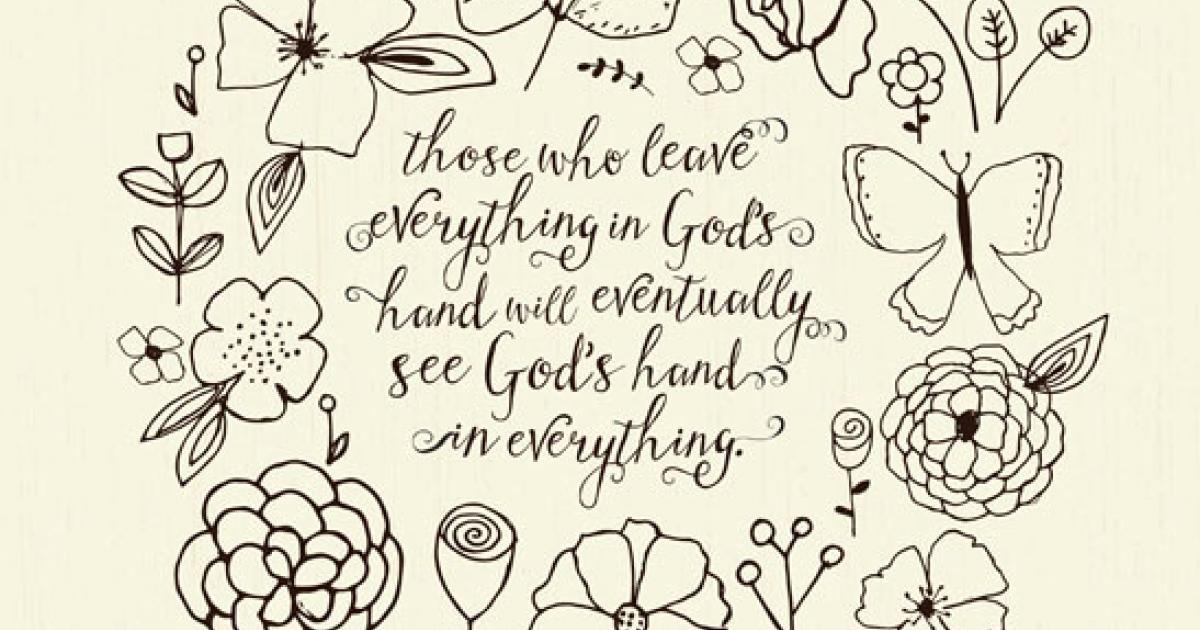 those who leave
everything in God's
hand will eventually
see God's hand
in everything.